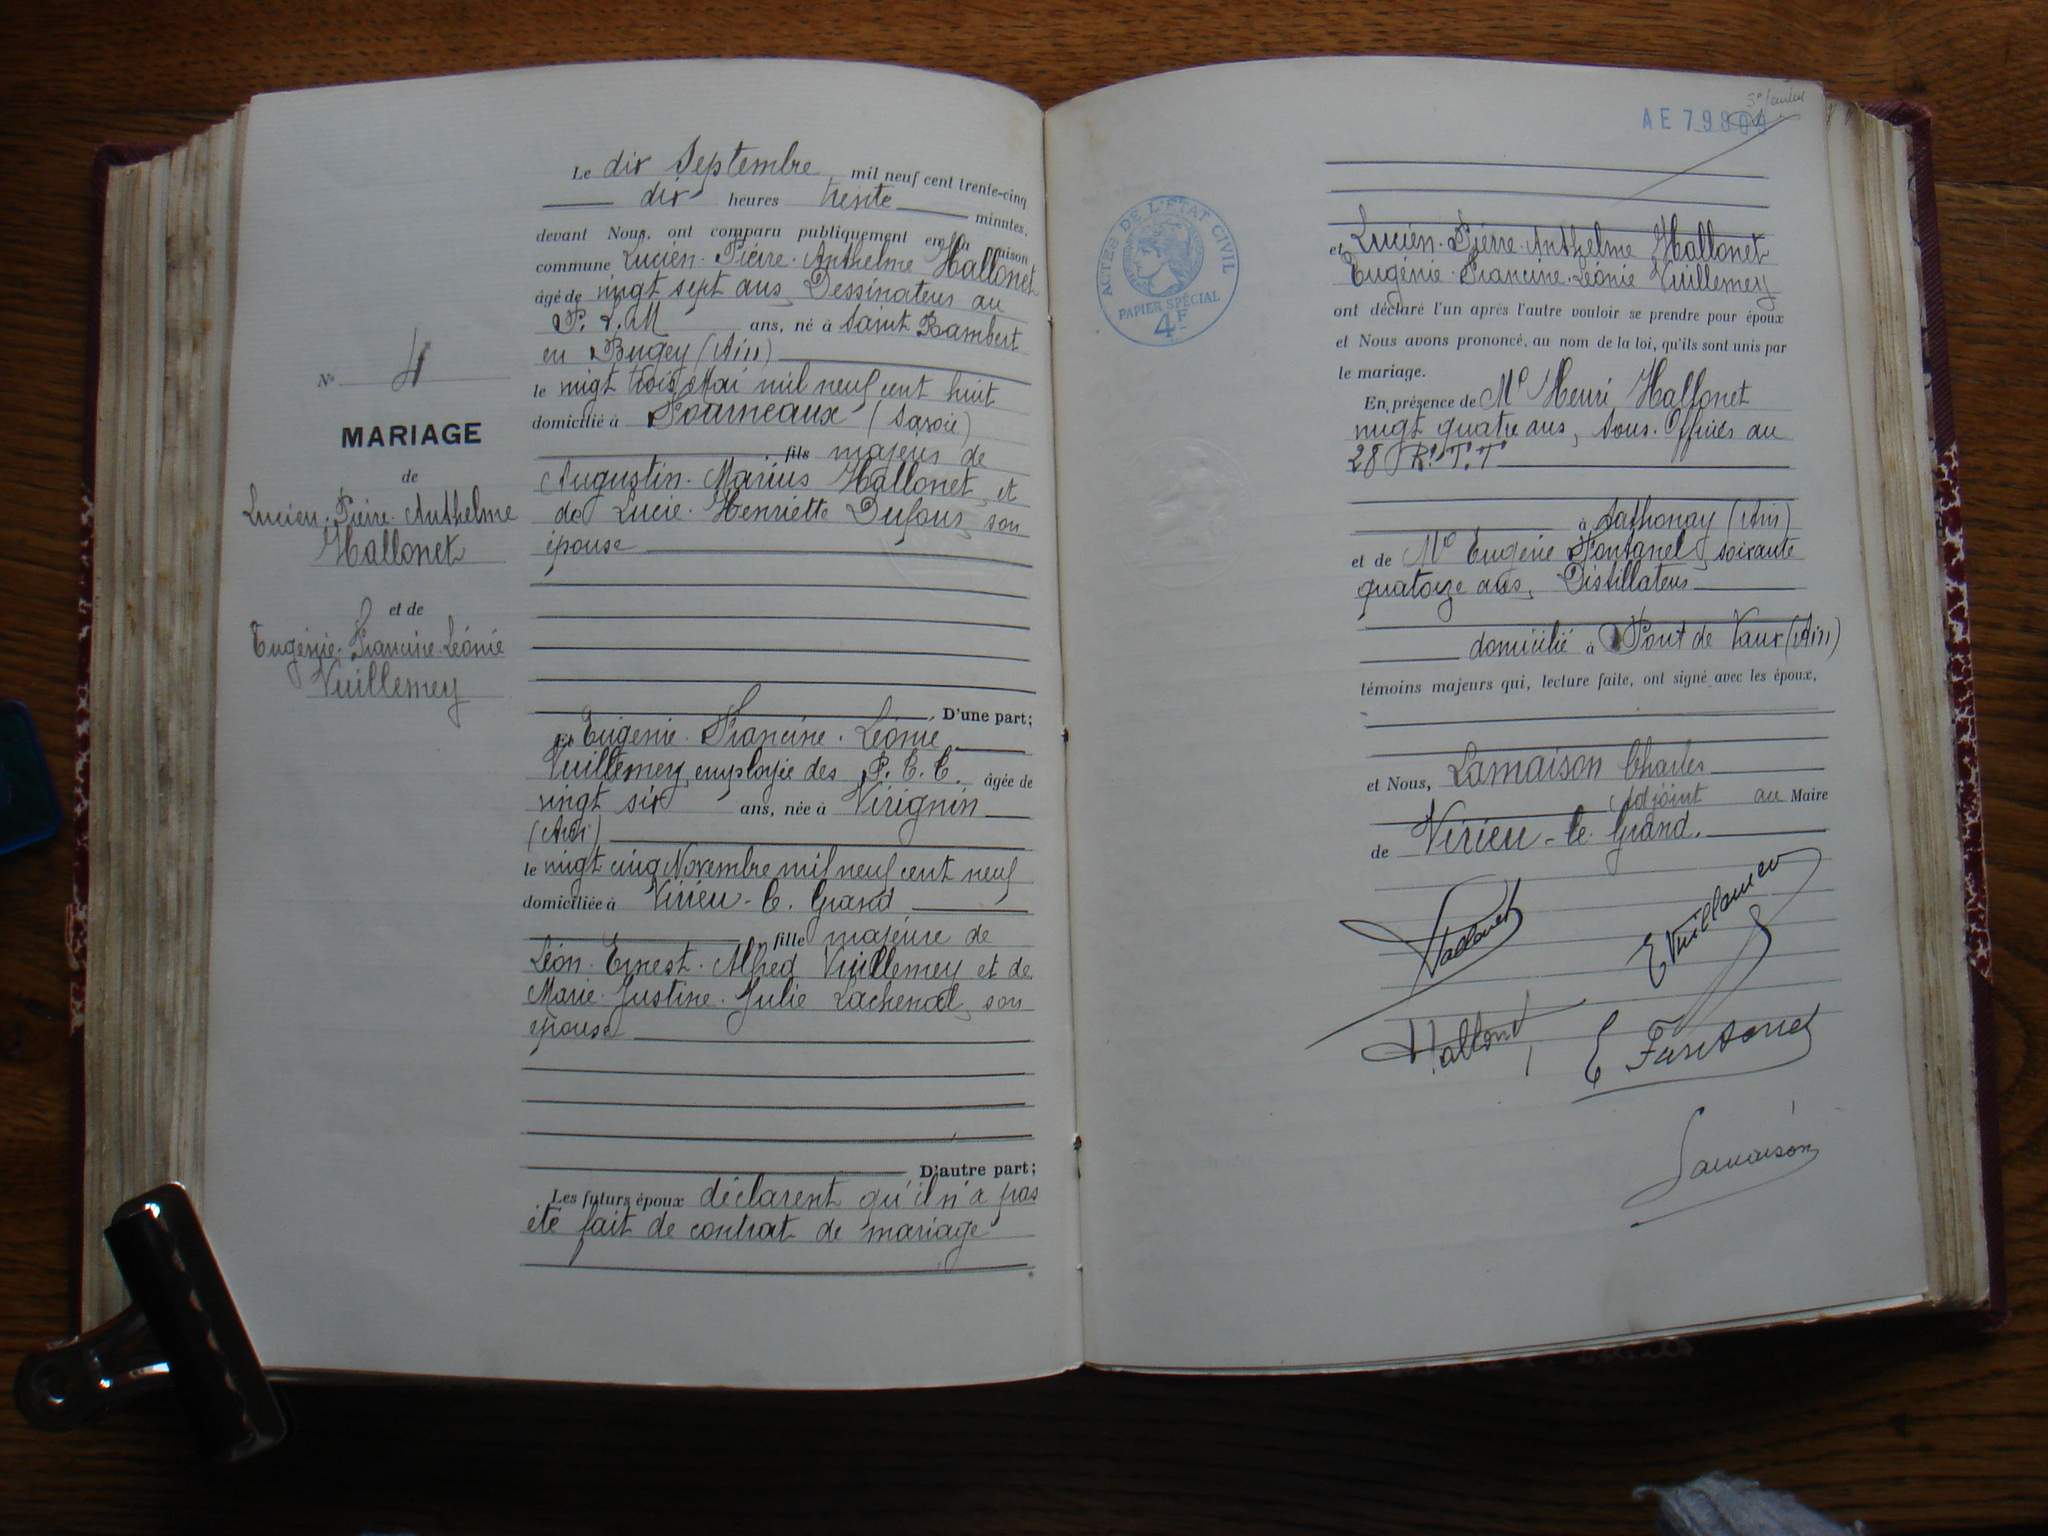 N° 4
MARIAGE
de
Lucien. Pierre. Anthelme
Hallonet
et de
Eugénie. Francine. Léonie
Vuillemey
Le dix Septembre mil neuf cent trente-cinq
dix heures trente minutes,
devant Nous, ont comparu publiquement en la maison
commune Lucien. Pierre. Anthelme Hallonet
âgé de vingt sept ans, Dessinateur au
P. L. M ans, né à Saint Rambert
en Bugey (Ain)
le vingt trois Mai mil neuf cent huit
domicilié à Fourneaux (Savoie)
fils majeur de
Augustin. Marius Hallonet, et
de Lucie. Henriette Dufour, son
épouse
D'une part;
Et Eugénie. Francine. Léonie
Vuillemey, employée des P. T. T. âgée de
vingt six ans, née à Virignin
(Ain)
le vingt cinq Novembre mil neuf cent neuf
domiciliée à Virieu-le. Grand
fille majeure de
Léon. Ernest. Alfred Vuillemey et de
Marie. Justine. Julie Lachenal, son
épouse
D'autre part;
Les futurs époux déclarent qu'il n'a pas
été fait de contrat de mariage
AE 79809
ACTES DE L'ETAT CIVIL
PAPIER SPÉCIAL
4F
Lucien. Pierre. Anthelme Hallonet
et Eugénie. Francine. Léonie Vuillemey
ont déclaré l'un après l'autre vouloir se prendre pour époux
et Nous avons prononcé, au nom de la loi, qu'ils sont unis par
le mariage.
En présence de Mr Henri Hallonet
vingt quatre ans, Sous. Officier au
28 R. T. T
à Sathonay (Ain)
et de Mr Eugénie Fontanel, soixante
quatorze ans, Distillateur
domicilié à Pont de Vaux (Ain)
témoins majeurs qui, lecture faite, ont signé avec les époux,
et Nous, Lamaison Charles
Adjoint au Maire
de Virieu-le. Grand.
Hallonet
E Vuillemey
Hallonet
E Fontanel
Lamaison